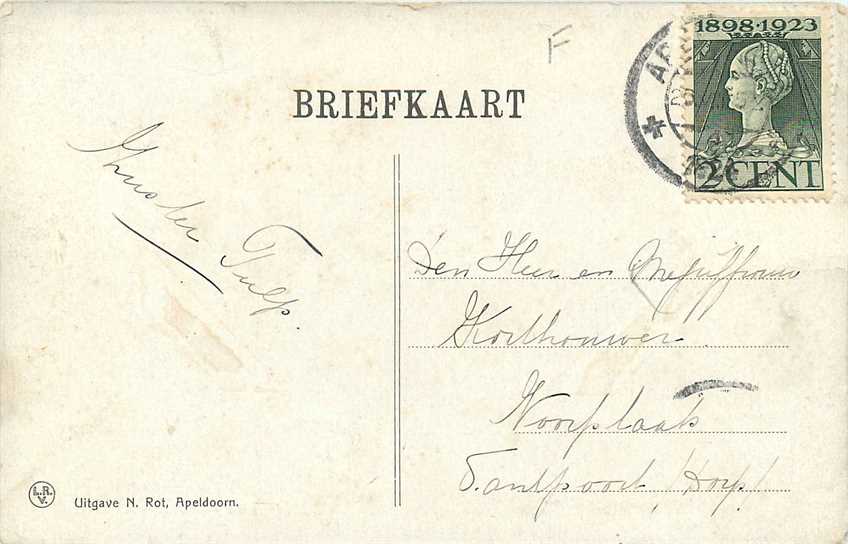 F
1898·1923
2 CENT
BRIEFKAART
Zuster
Tulp.
Den Heer en Mejuffrouw
Korthouwer.
Santpoort (Dorp)
L.R.
V.
Uitgave N. Rot, Apeldoorn.